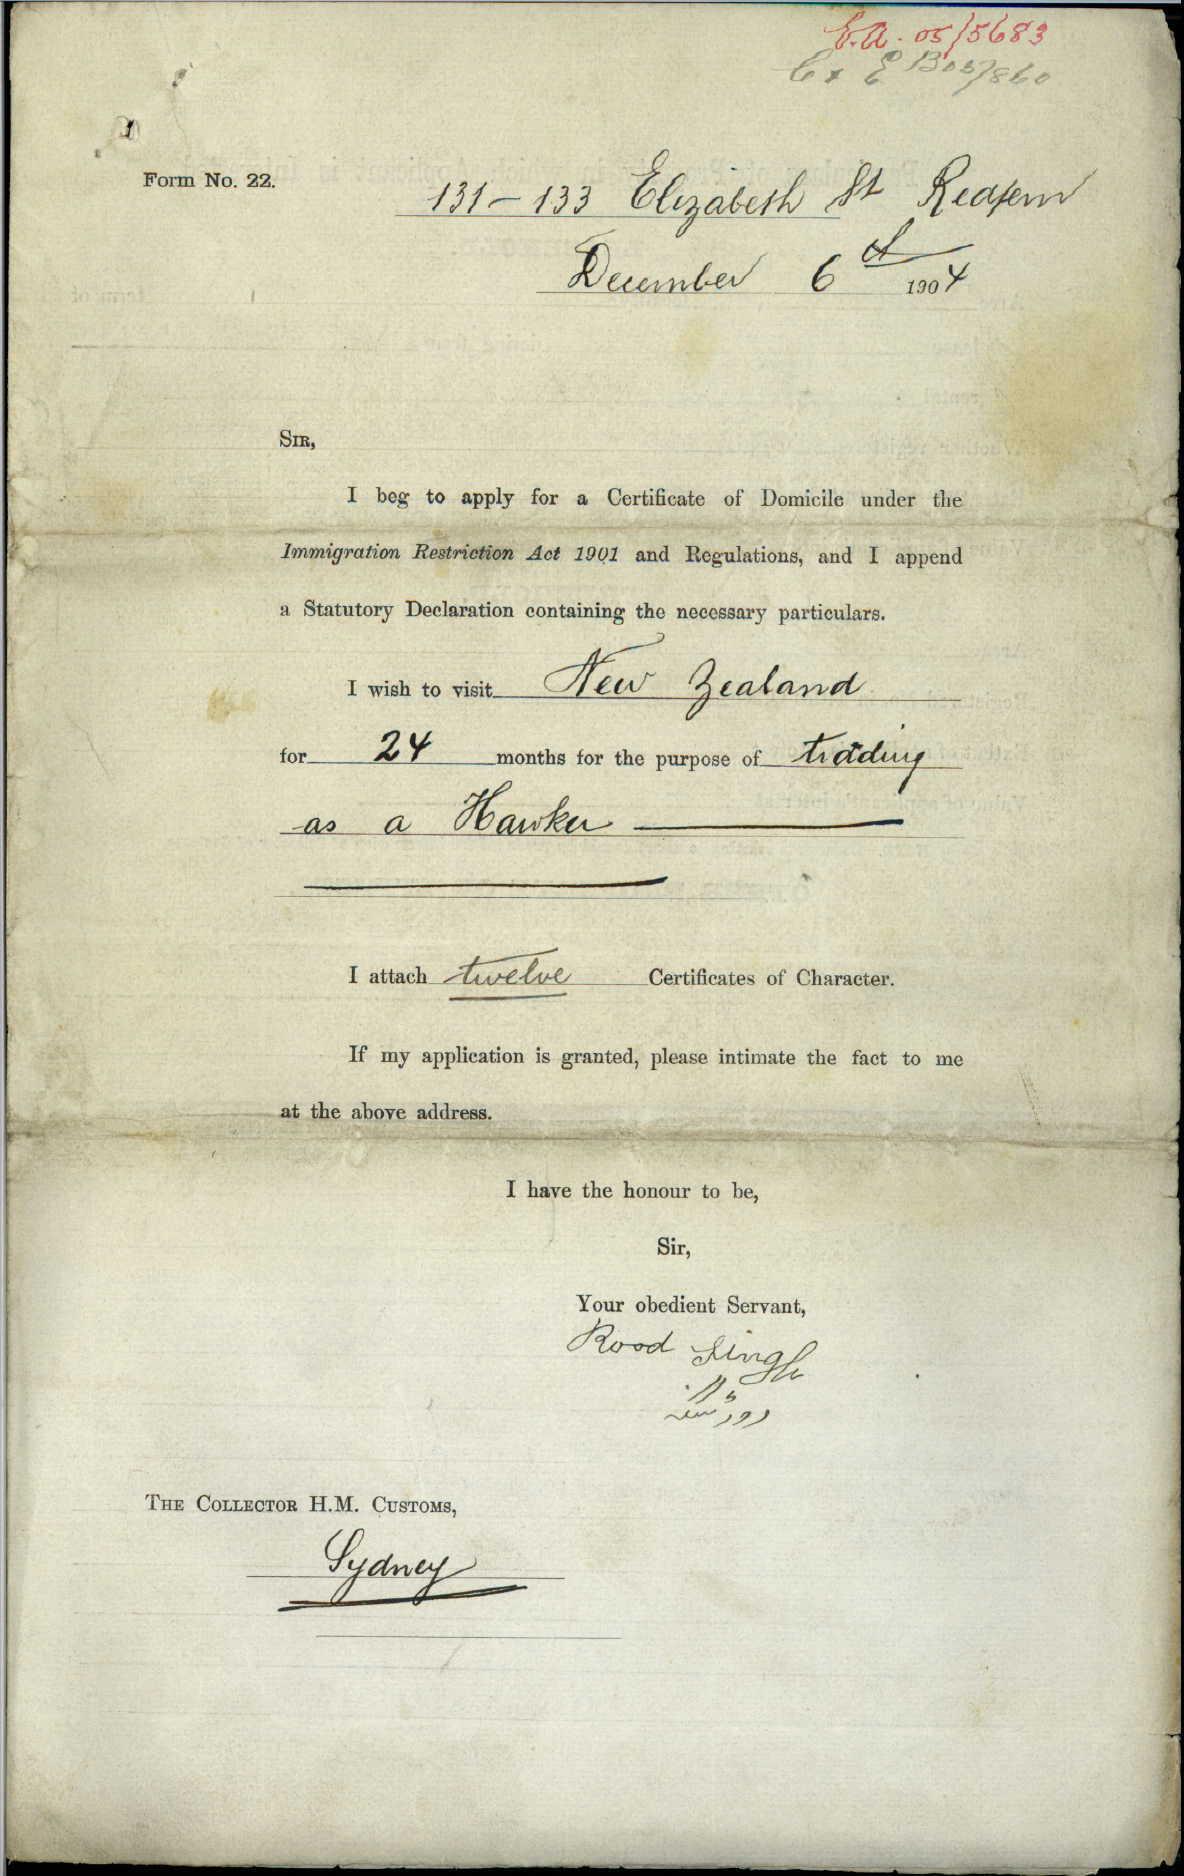 E.A. 05/5683
Ex E B05/860
Form No. 22.
131-133 Elizabeth St Redfern
December 6th 1904
SIR,
I beg to apply for a Certificate of Domicile under the
Immigration Restriction Act 1901 and Regulations, and I append
a Statutory Declaration containing the necessary particulars.
I wish to visit New Zealand
for 24 months for the purpose of trading
as a Hawker
I attach twelve Certificates of Character.
If my application is granted, please intimate the fact to me
at the above address.
I have the honour to be,
Sir,
Your obedient Servant,
Rood Singh
THE COLLECTOR H.M. CUSTOMS,
Sydney